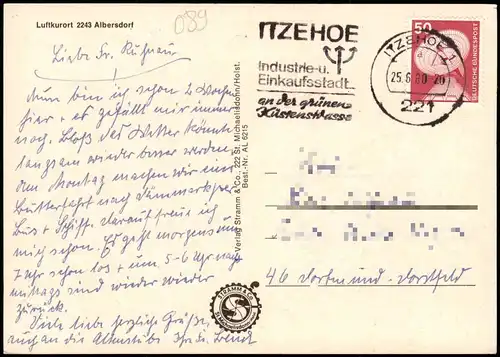 Luftkurort 2243 Albersdorf
089
Liebe Fr. Kühnau
Nun bin ich schon 2 Woche
hier + es gefällt mir immer
noch. Bloß das Wetter könnte
langsam wieder besser werden,
am Montag machen wir eine
Butterfahrt nach Dänemark per
Bus + Schiff. darauf freue ich
mich schon. Es geht morgens um
7 Uhr schon los + um 5-6 Uhr nach-
mittags sind wieder
zurück.
Viele liebe herzliche Grüße,
auch an die
Verlag Stramm & Co., 222 St. Michaelisdonn/Holst.
Best.-Nr. AL 6215
STRAMM & CO.
ITZEHOE
Industrie-u.
Einkaufsstadt
an der grünen
Küstenstrasse
ITZEHOE 1
25.6.80-20
221
50
DEUTSCHE BUNDESPOST
46 Dortmund-Dorstfeld